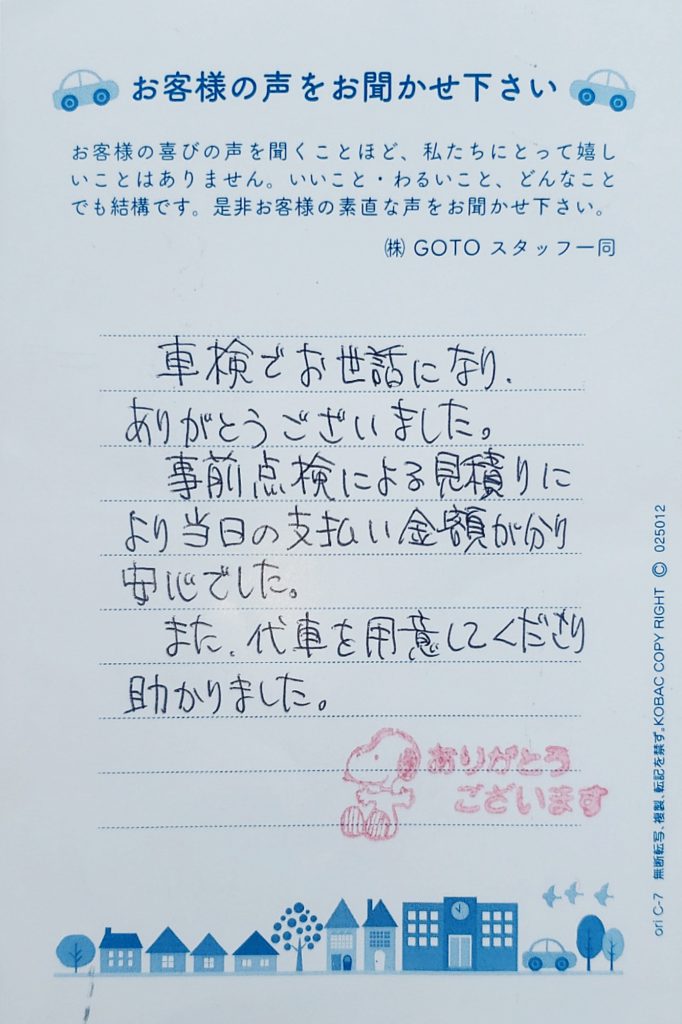 お客様の声をお聞かせ下さい
お客様の喜びの声を聞くことほど、私たちにとって嬉し
いことはありません。いいこと・わるいこと、どんなこと
でも結構です。是非お客様の素直な声をお聞かせ下さい。
㈱ GOTO スタッフ一同
車検でお世話になり、
ありがとうございました。
事前点検による見積りに
より当日の支払い金額が分り
安心でした。
また、代車を用意してくださり
助かりました。
ありがとう
ございます
ori C-7 無断転写、複製、転記を禁ず。KOBAC COPY RIGHT © 025012